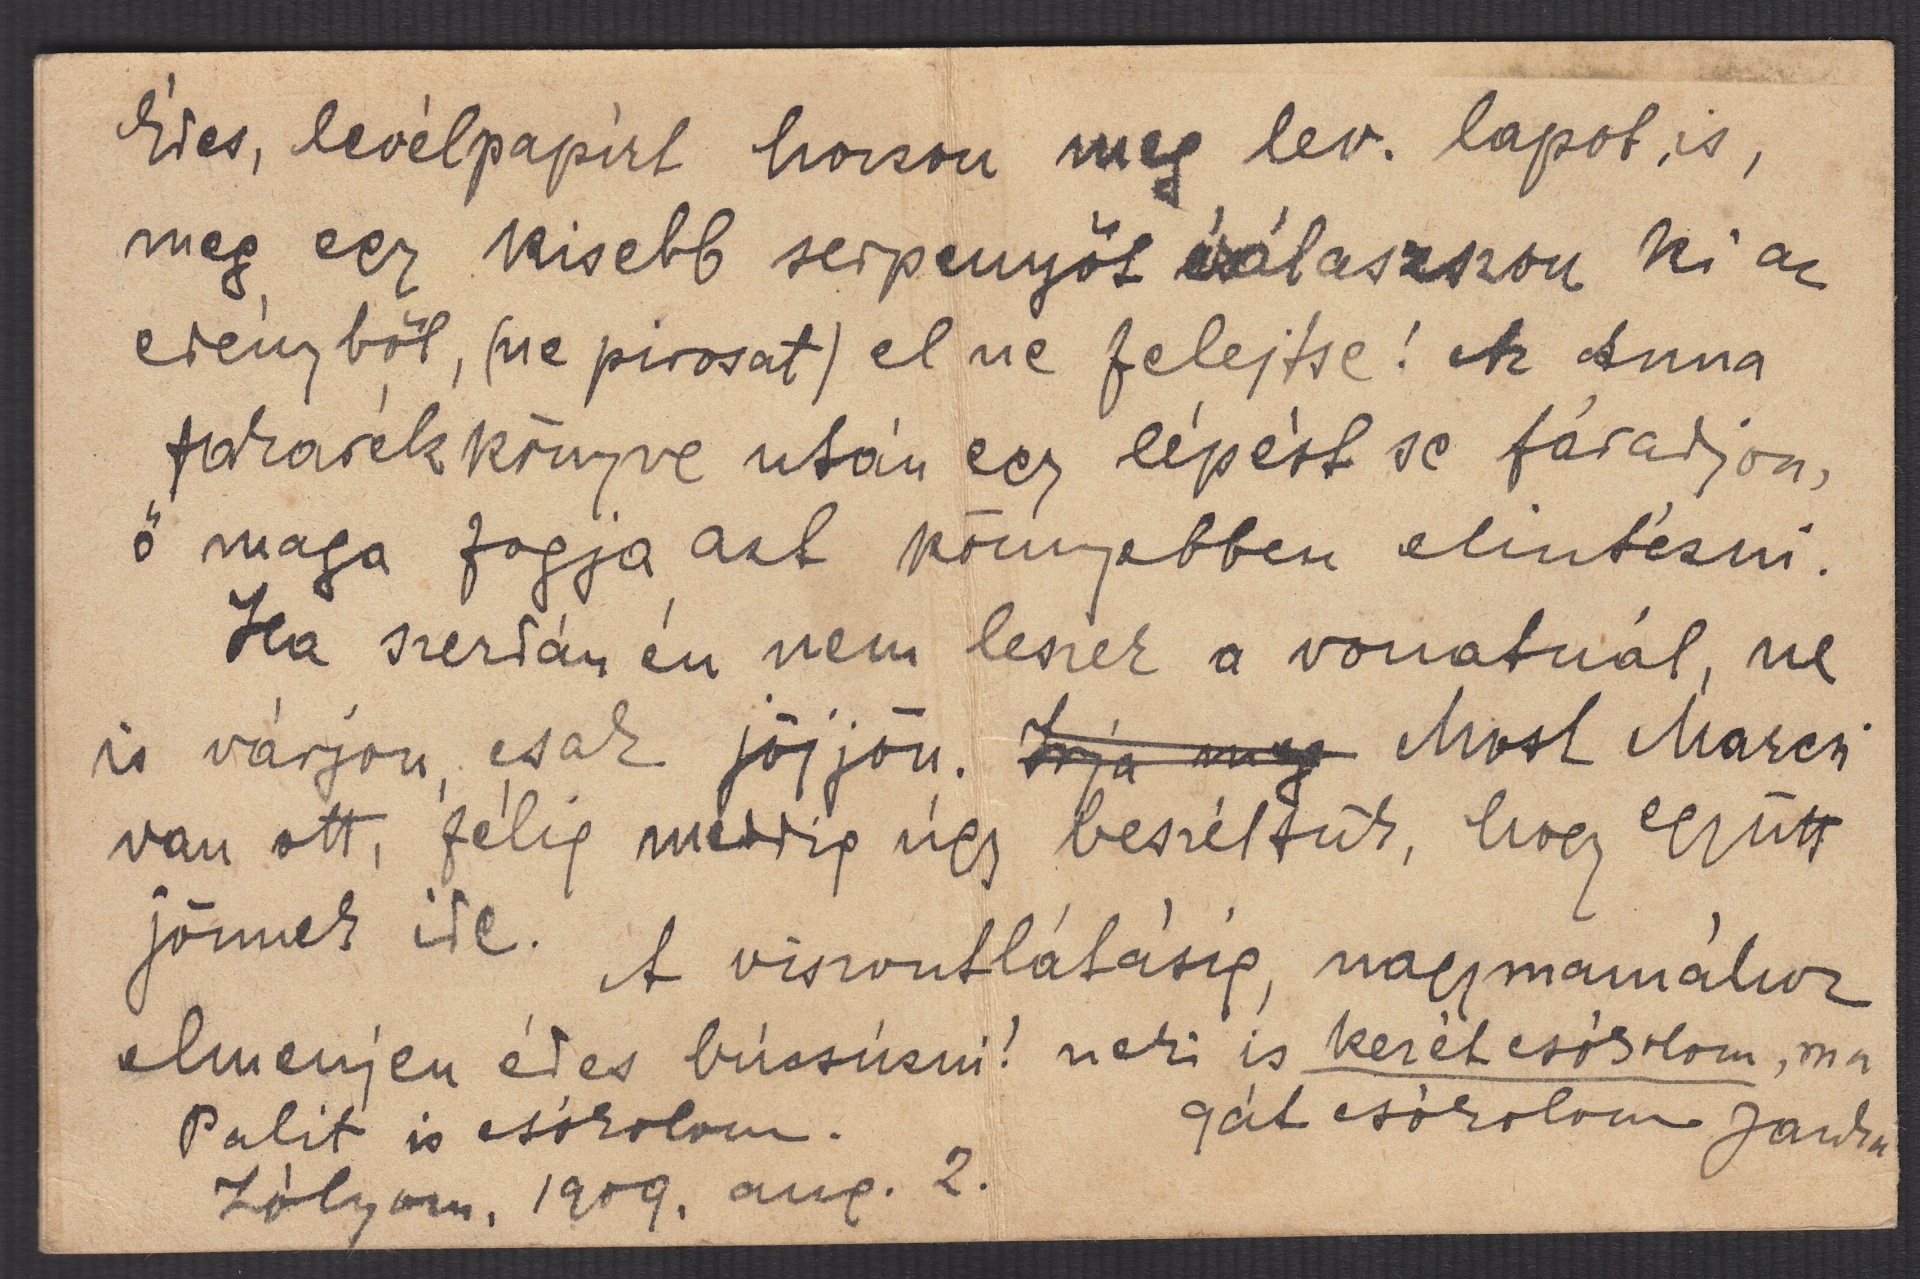 Édes, levélpapírt hozzon meg lev. lapot is,
meg egy kisebb serpenyőt válasszon ki az
edényből, (ne pirosat) el ne felejtse! Az Anna
takarék könyve után egy lépést se fáradjon,
ő maga fogja azt könnyebben elintézni.
Ha szerdán én nem leszek a vonatnál, ne
is várjon, csak jőjjön. Irja meg Most Marczi
van ott, félig meddig úgy beszéltük, hogy együtt
jönnek ide.
A viszontlátásig, nagymamához
elmenjen édes búcsúzni! neki is kezét csókolom, ma
gát csókolom Janka
Palit is csókolom.
Zólyom, 1909. aug. 2.